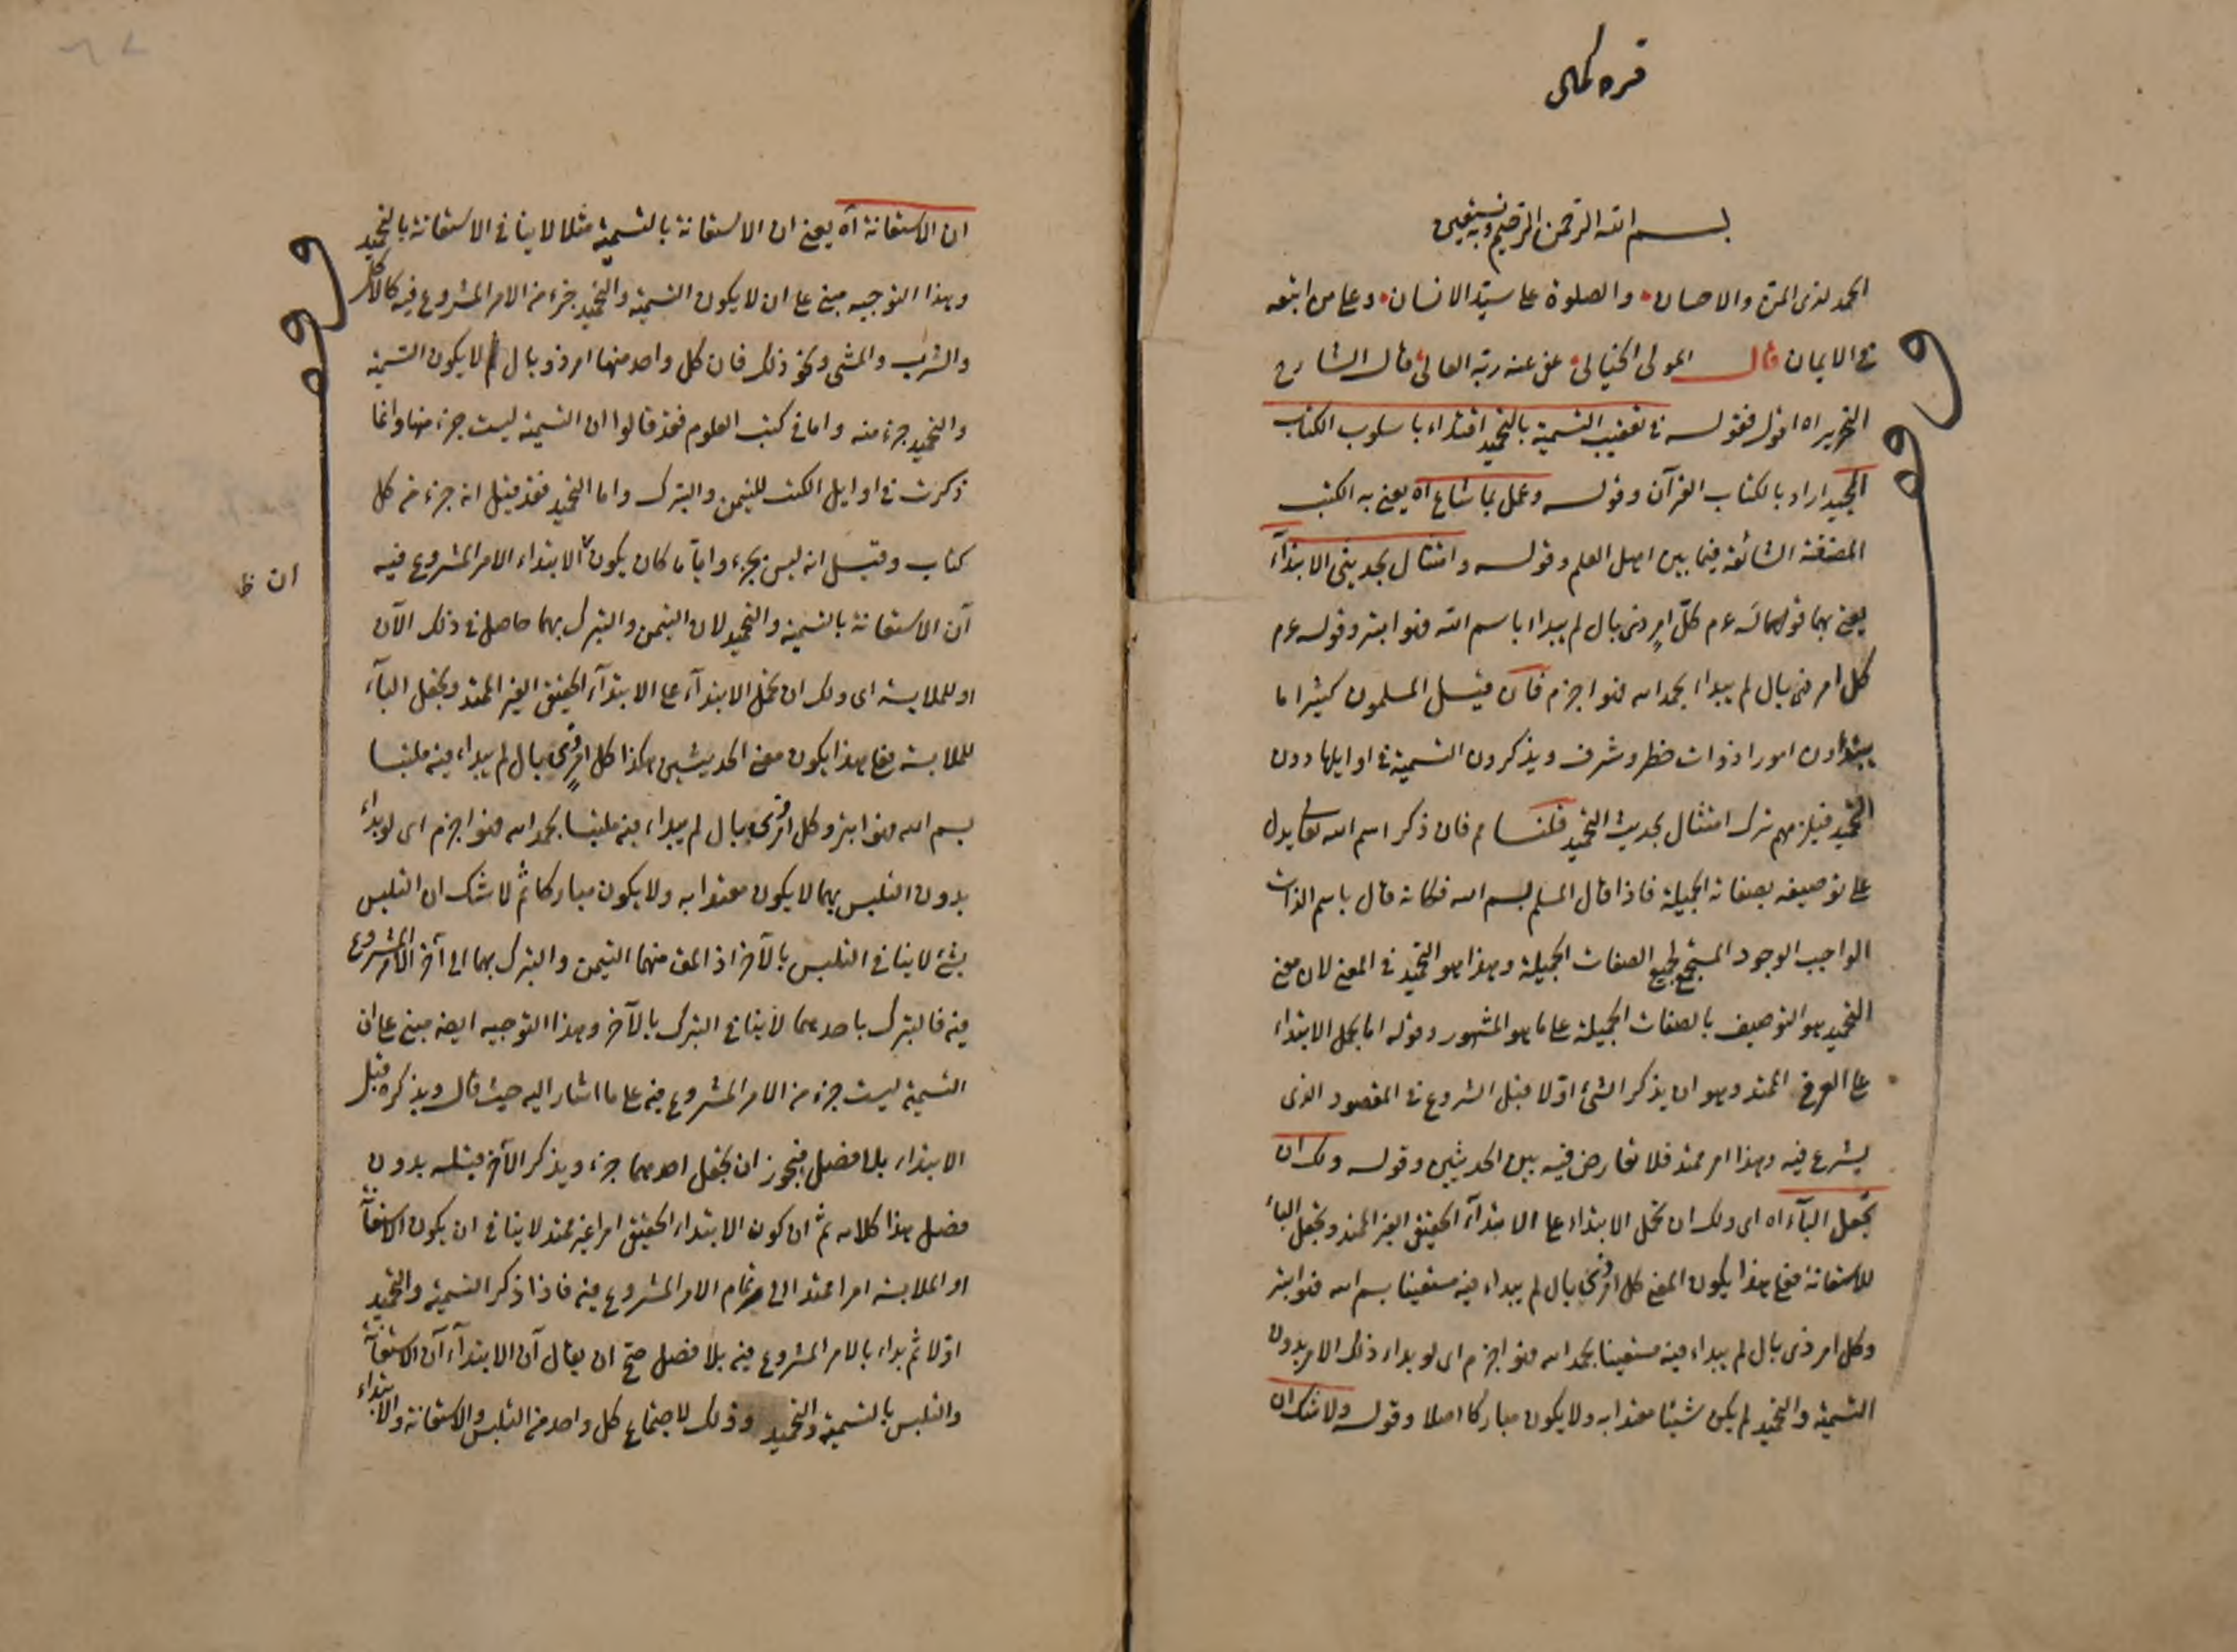 قره كمال
بسم الله الرحمن الرحيم وبه نستعين
الحمد لذى المن والاحسان والصلوة على سيد الانسان وعلى من اتبعه
فى الايمان قال المولى الخيالى عفى عنه ربه العالى قال الشارح
النحرير اه اقول فقوله فى تعقيب التسمية بالتحميد اقتداء باسلوب الكتاب
المجيد اراد بالكتاب القرآن وقوله وعمل بما شاع اه يعنى به الكتب
المصنفة الشائعة فيما بين اهل العلم وقوله وامتثال بحديثى الابتداء
يعنى بهما قوله عم كل امر ذى بال لم يبداء باسم الله فهو ابتر وقوله عم
كل امر ذى بال لم يبداء بحمد الله فهو اجزم فان قيل المسلمون كثيرا ما
يبتداون امورا ذوات خطر وشرف ويذكرون التسمية فى اوايلها دون
التحميد فيلزمهم ترك امتثال بحديث التحميد قلنا م فان ذكر اسم الله تعالى يدل
على توصيفه بصفاته الجميلة فاذا قال المسلم بسم الله فكانه قال باسم الذات
الواجب الوجود المستجمع لجميع الصفات الجميلة وهذا هو التحميد فى المعنى لان معنى
التحميد هو التوصيف بالصفات الجميلة على ما هو المشهور وقوله اما بحمل الابتداء
على العرفى الممتد وهو ان يذكر الشئ اولا قبل الشروع فى المقصود الذى
يشرع فيه وهذا امر ممتد فلا تعارض فيه بين الحديثين وقوله ولك ان
تجعل الباء اه اى ولك ان تحمل الابتداء على الابتداء الحقيقى الغير الممتد وتجعل الباء
للاستعانة فعلى هذا يكون المعنى كل امر ذى بال لم يبداء فيه مستعينا بسم الله فهو ابتر
وكل امر ذى بال لم يبداء فيه مستعينا بحمد الله فهو اجزم اى لو بداء ذلك الامر بدون
التسمية والتحميد لم يكن شيئا معتدا به ولا يكون مباركا اصلا وقوله ولا شك ان
ان الاستعانة اه يعنى ان الاستعانة بالتسمية مثلا لا ينافى الاستعانة بالتحميد
وهذا التوجيه مبنى على ان لا يكون التسمية والتحميد جزء من الامر المشروع فيه كالاكل
والشرب والمشى ونحو ذلك فان كل واحد منها امر ذو بال لا يكون التسمية
والتحميد جزء منه واما فى كتب العلوم فقد قالوا ان التسمية ليست جزء منها وانما
ذكرت فى اوايل الكتب للتيمن والتبرك واما التحميد فقد قيل انه جزء من كل
كتاب وقيل انه ليس بجزء وايا ما كان يكون الابتداء الامر المشروع فيه
ان ظ
آن الاستعانة بالتسمية والتحميد لان التيمن والتبرك بهما حاصل فى ذلك الآن
او للملابسة اى ولك ان تحمل الابتداء على الابتداء الحقيقى الغير الممتد وتجعل الباء
للملابسة فعلى هذا يكون معنى الحديثين هكذا كل امر ذى بال لم يبداء فيه ملتبسا
بسم الله فهو ابتر وكل امر ذى بال لم يبداء فيه ملتبسا بحمد الله فهو اجزم اى لو بداء
بدون التلبس بهما لا يكون معتدا به ولا يكون مباركا ثم لا شك ان التلبس
بشئ لا ينافى التلبس بالآخر اذ المقـ منهما التيمن والتبرك بهما الى آخر الامر المشروع
فيه فالتبرك باحدهما لا ينافى التبرك بالآخر وهذا التوجيه ايضا مبنى على ان
التسمية ليست جزء من الامر المشروع فيه على ما اشار اليه حيث قال ويذكره قبل
الابتداء بلا فصل فيجوز ان يجعل احدهما جزء ويذكر الآخر قبله بدون
فصل هذا كلامه ثم ان كون الابتداء الحقيقى امرا غير ممتد لا ينافى ان يكون الاستعانة
او الملابسة امرا ممتدا الى تمام الامر المشروع فيه فاذا ذكر التسمية والتحميد
اولا ثم بداء بالامر المشروع فيه بلا فصل صح ان يقال آن الابتداء آن الاستعانة
والتلبس بالتسمية والتحميد وذلك لاجتماع كل واحد من التلبس والاستعانة والابتداء